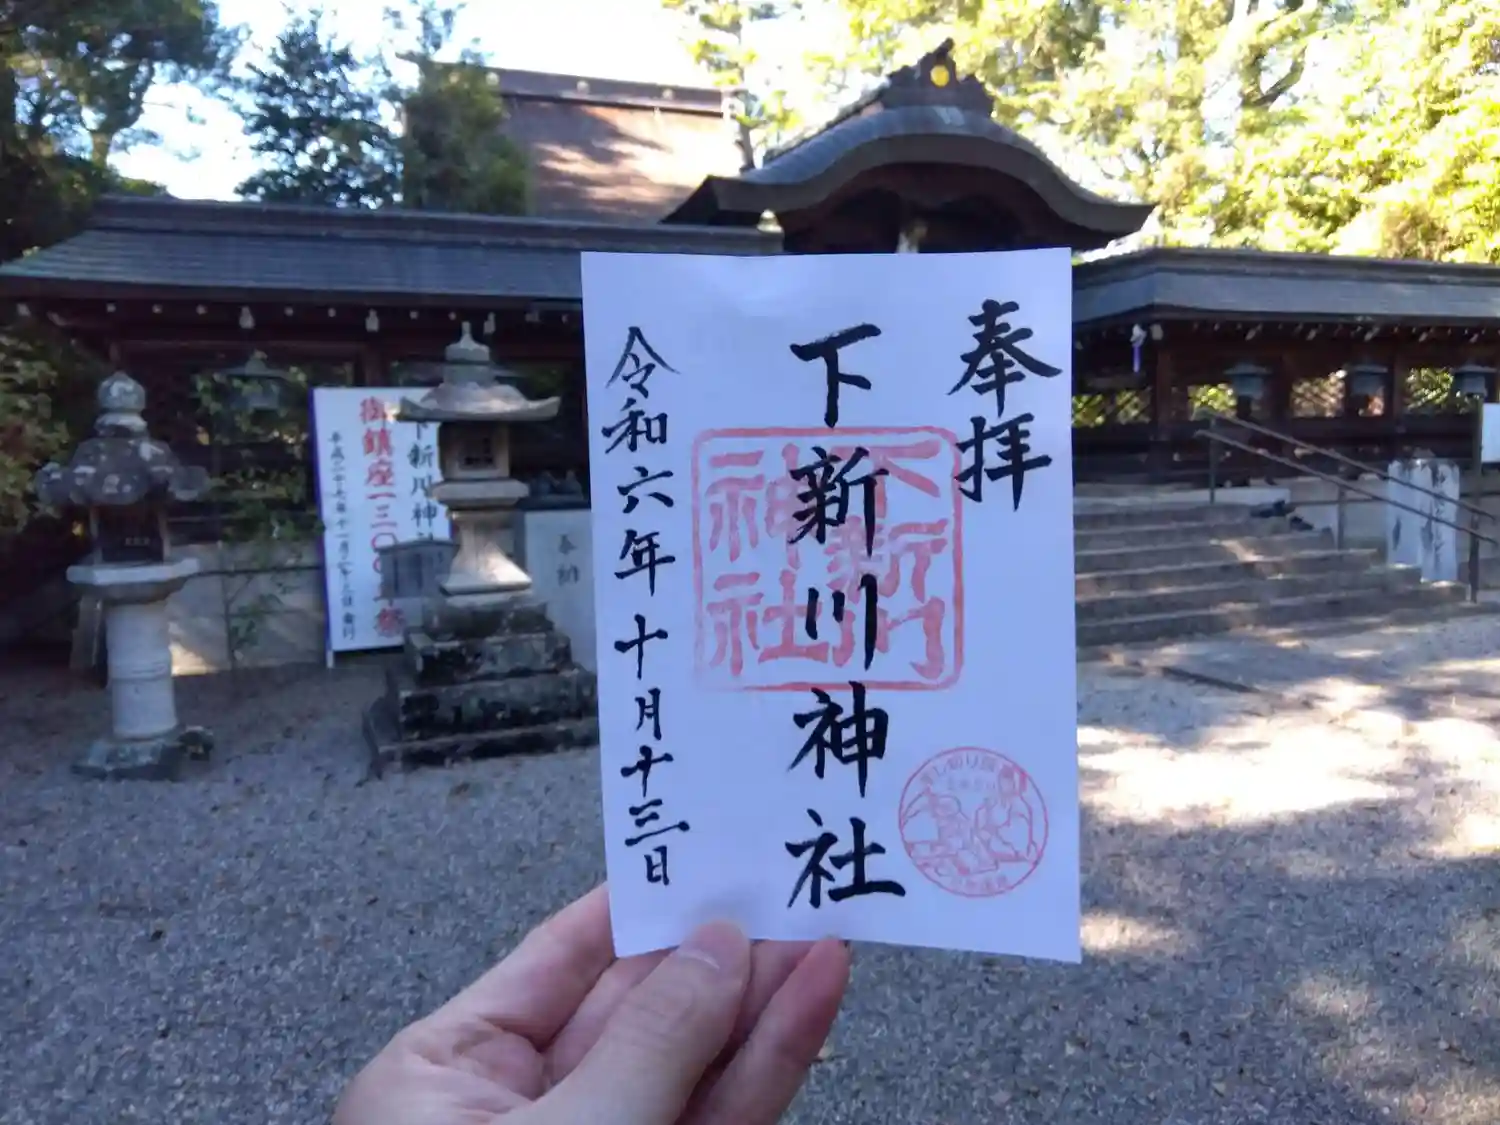 奉拝
下新川神社
令和六年十月十三日
下新川
神社
下新川神社
御鎮座一三〇〇年祭
奉納